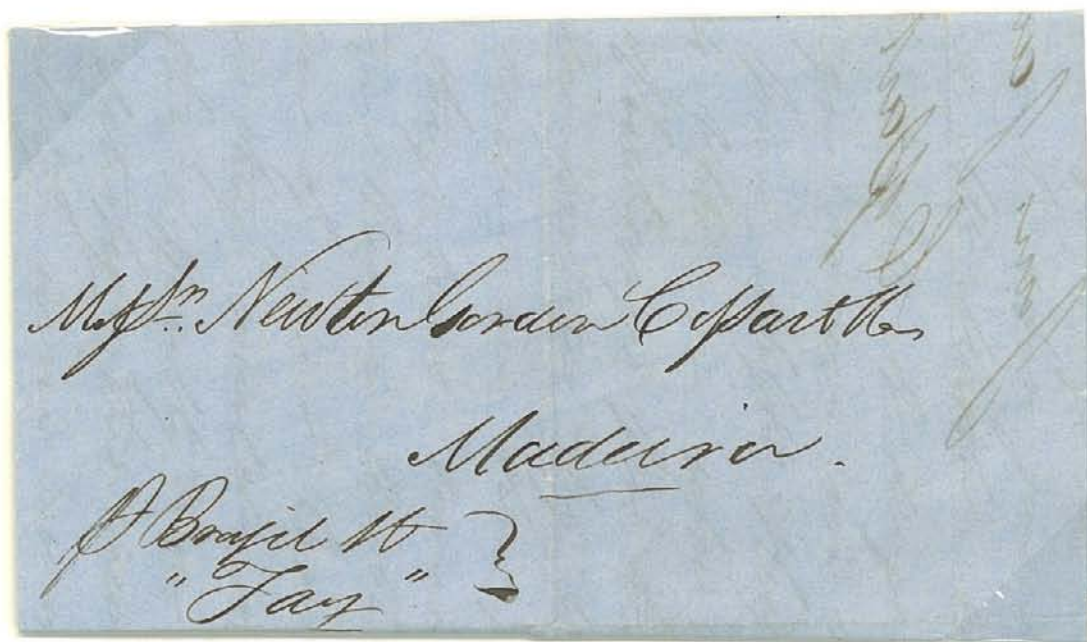 Messrs. Newton Gordon Cossart & Co
Madeira.
pr Brazil Str
" Tay "